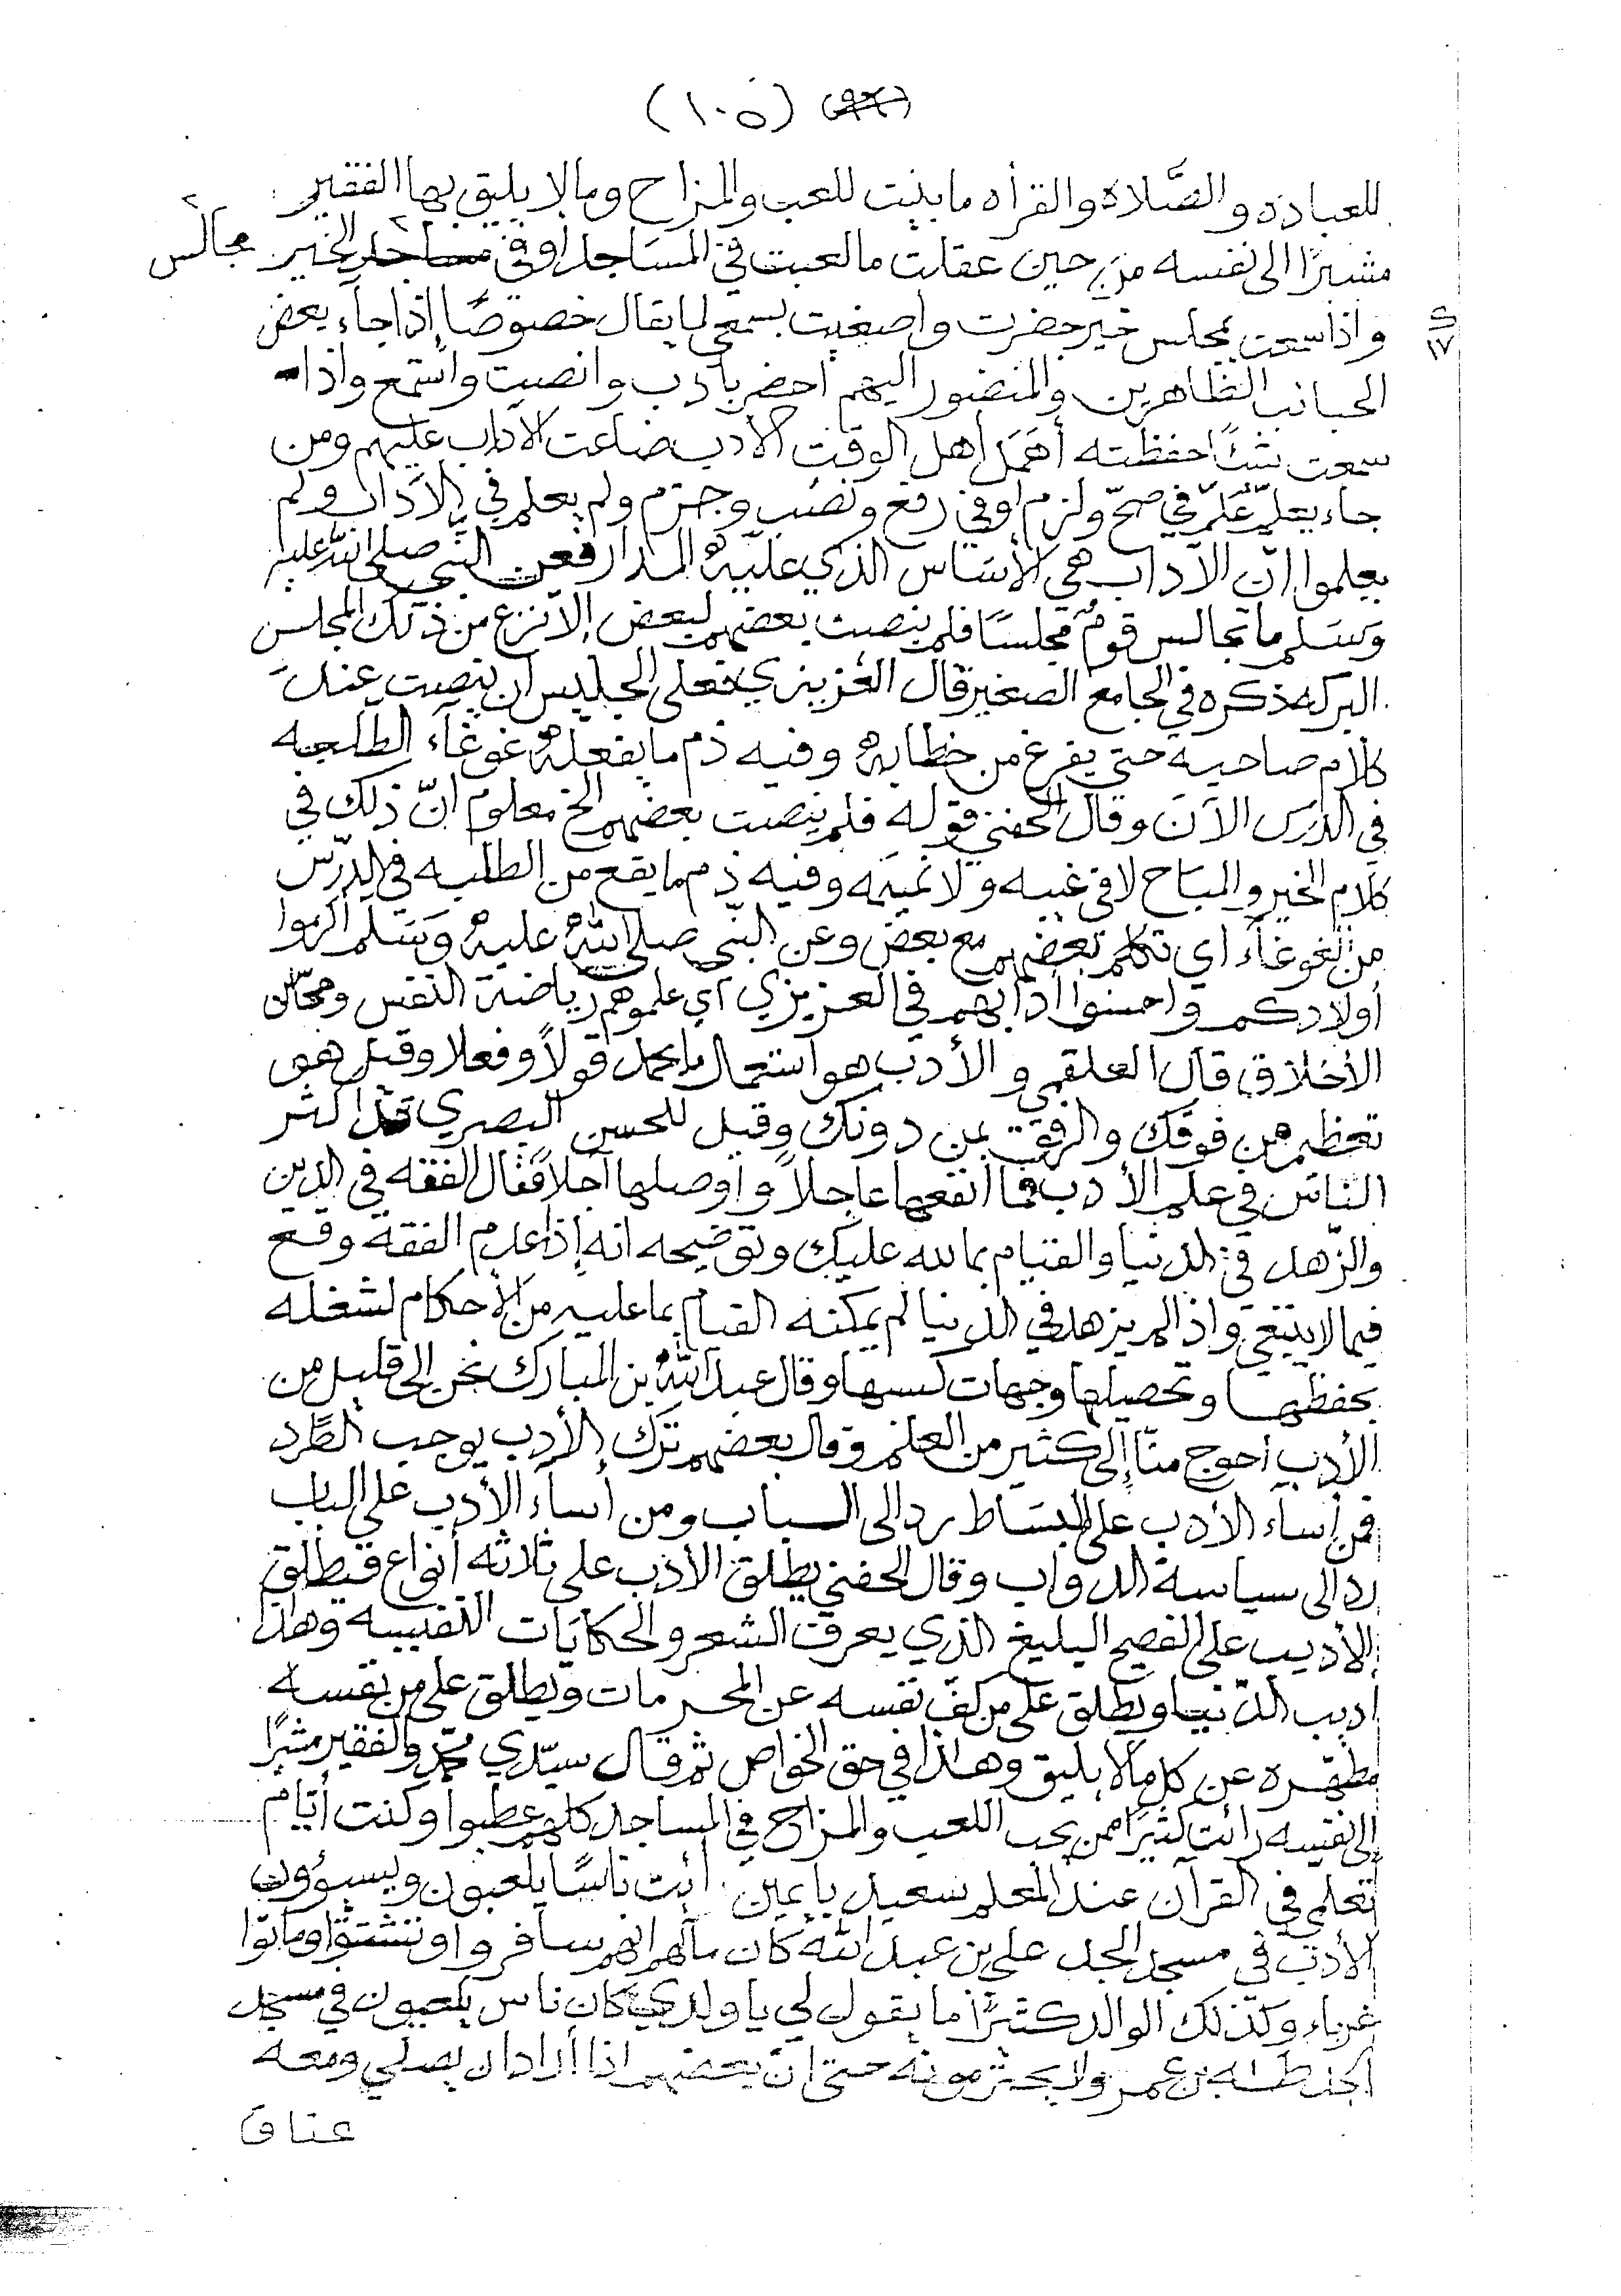 (١٠٥)
للعباده والصَّلاة والقرأه ما بنيت للعب والمزاح وما لا يليق بها الفقير
مشيرًا الى نفسه من حين عقلت ما لعبت في المسَاجد او في مساجد الخير مجالس
واذا سمعت بمجلس خير حضرت واصغيت بسمعي لما يقال خصوصًا إذا جاء بعض
الحبائب الظاهرين والمنضور اليهم احضر بأدب وانصت واستمع واذا
سمعت شيئًا حفظته أهمَل أهل الوقت الأدب ضاعت الآداب عليهم ومن
جاء يعلّم علّم في صحّ ولزم او في رفع ونصب وجزم ولم يعلم في الآداب ولم
يعلموا انّ الآداب هي الأسَاس الذي عليهُ المدار فعن النّبي صلى الله عليه
وسَلم ما تجالس قومٌ مجلسًا فلم ينصت بعضهم لبعض إلا نزع من ذلك المجلس
البركه ذكره في الجامع الصغير قال العزيزي فعلى الجليس ان ينصت عند
كلام صاحبه حتى يفرغ من خطابهُ وفيه ذم ما يفعلهُ غوغآء الطلبه
في الدرَس الآنَ وقال الحفني قوله فلم ينصت بعضهم الخ معلوم انّ ذلك في
كلام الخير والمبَاح لا في غيبه ولا نميمَه وفيه ذم ما يقع من الطلبه في الدرّس
من الغوغآء اي تكلم بعضهم مع بعض وعن النّبي صلى اللهُ عليهُ وسَلم أكرموا
أولادكم واحسنوا آدابهم في العزيزي اي علموهم رياضة النفس ومحاسن
الأخلاق قال العلقمي والأدب هو استعمال ما يحمل قولاً وفعلا وقيل هو
تعظيم من فوقك والرفق بمن دونك وقيل للحسن البصري قد اكثر
الناس في علم الأدب فما انفعها عاجلاً واوصلها آجلاً فقال الفقه في الدين
والزّهد في الدنيا والقيام بما لله عليك وتوضيحه انه إذا عدم الفقه وقع
فيما لا ينبغي واذا لم يزهد في الدنيا لم يمكنه القيام بما عليه من الأحكام لشغله
بحفظها وتحصيلها وجهات كسبها وقال عبد اللهُ بن المبارك نحن إلى قليل من
الأدب أحوج منّا إلى كثير من العلم وقال بعضهم ترَك الأدب يوجب الطرد
فمن أساء الأدب على البسَاط رد الى الباب ومن أسآء الأدب على الباب
رد الى سياسة الدواب وقال الحفني يطلق الأدب على ثلاثه أنواع فيطلق
الأديب على الفصيح البليغ الذي يعرف الشعر والحكايات النفيسه وهذا
اديب الدّنيا ويطلق على من كفّ نفسه عن المحرمات ويطلق على من نفسه
مطهره عن كل ما لا يليق وهذا في حق الخواص ثم قال سيّدي محمد والفقير مشيرًا
إلى نفسه رأيت كثيرًا ممن يحب اللعب والمزاح في المساجد كلهم عطبوا وكنت أيّام
تعلمي في القرآن عند المعلم سعيد باعمين رأيت ناسًا يلعبون ويسيؤون
الأدب في مسجد الجد علي بن عبد الله كان مآلهم انهم سافروا وتشتتوا وماتوا
غرباء وكذلك الوالد كثيرًا ما يقول لي يا ولدي كان ناس يلعبون في مسجد
الجد طه بن عمر ولا يحترمونه حتى انّ بعضهم اذا أراد ان يصلي ومعه
عناق